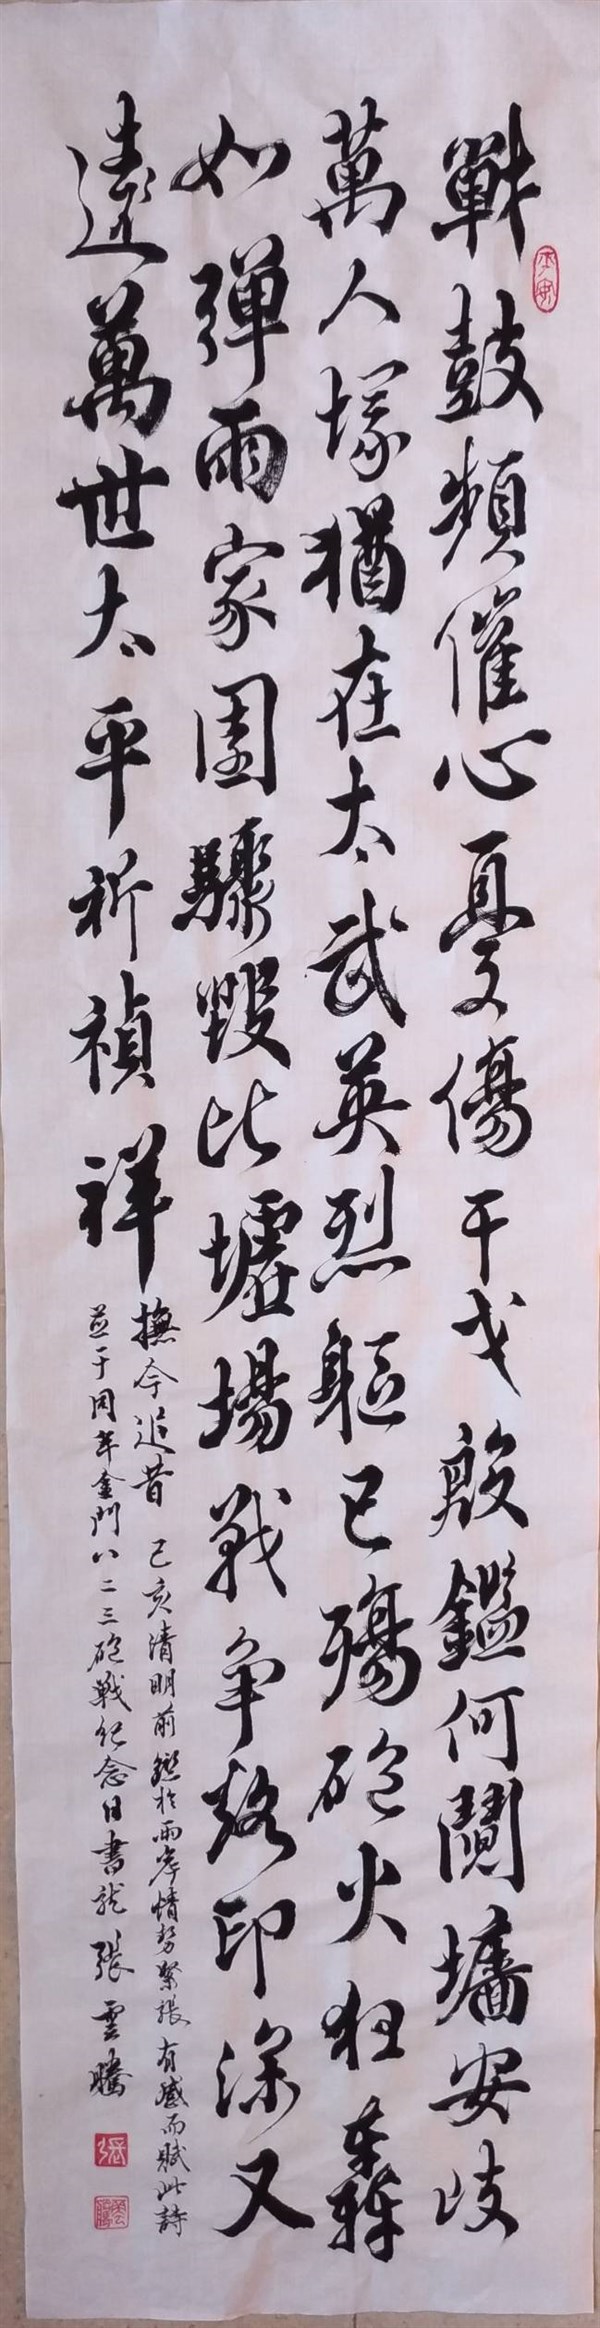 戰鼓頻催心憂傷干戈殷鑑何鬩墻安歧
萬人塚猶在太武英烈軀已殤砲火狂轟
如彈雨家園驟毀比墟場戰爭烙印深又
遠萬世太平祈禎祥
撫今追昔 己亥清明前鑑於兩岸情勢緊張有感而賦此詩
並于同年金門八二三砲戰紀念日書就 張雲騰